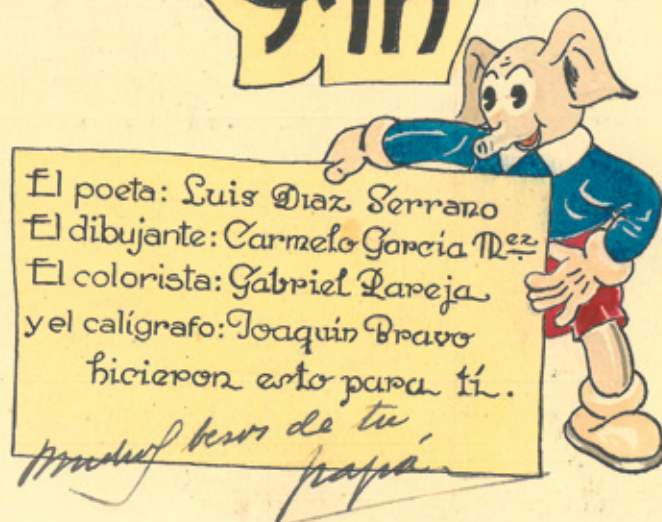 Fin
El poeta: Luis Diaz Serrano
El dibujante: Carmelo García Mez
El colorista: Gabriel Pareja
y el calígrafo: Joaquin Bravo
hicieron esto para tí.
muchos besos de tu
papá